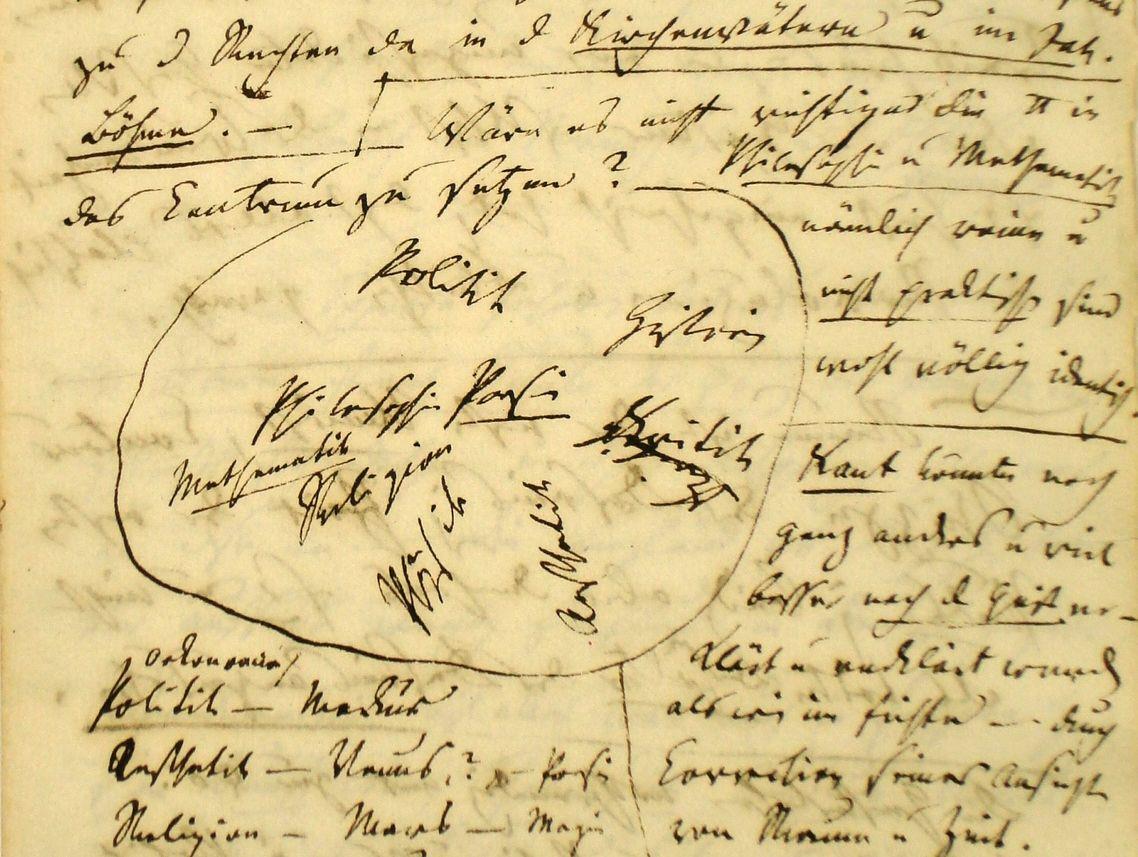 zu d Suchten da in d Kirchenvätern u im Jak.
Böhme. — Wäre es nicht richtiger die π in
das Centrum zu setzen? —
Philosophie u Mathematik
nämlich reine u
nicht praktische sind
wohl völlig identisch.
Politik
Historie
Philosophie Poesie
Kritik
Mathematik
Religion
Physik
Aesthetik
Kant könnte noch
ganz anders u viel
besser nach d Geist er-
klärt u verklärt werden
als wie im Fichte — durch
Correction seiner Ansicht
von Raum u Zeit.
Oekonomie/
Politik — Merkur
Aesthetik — Venus? — Poesie
Religion — Mars — Magie